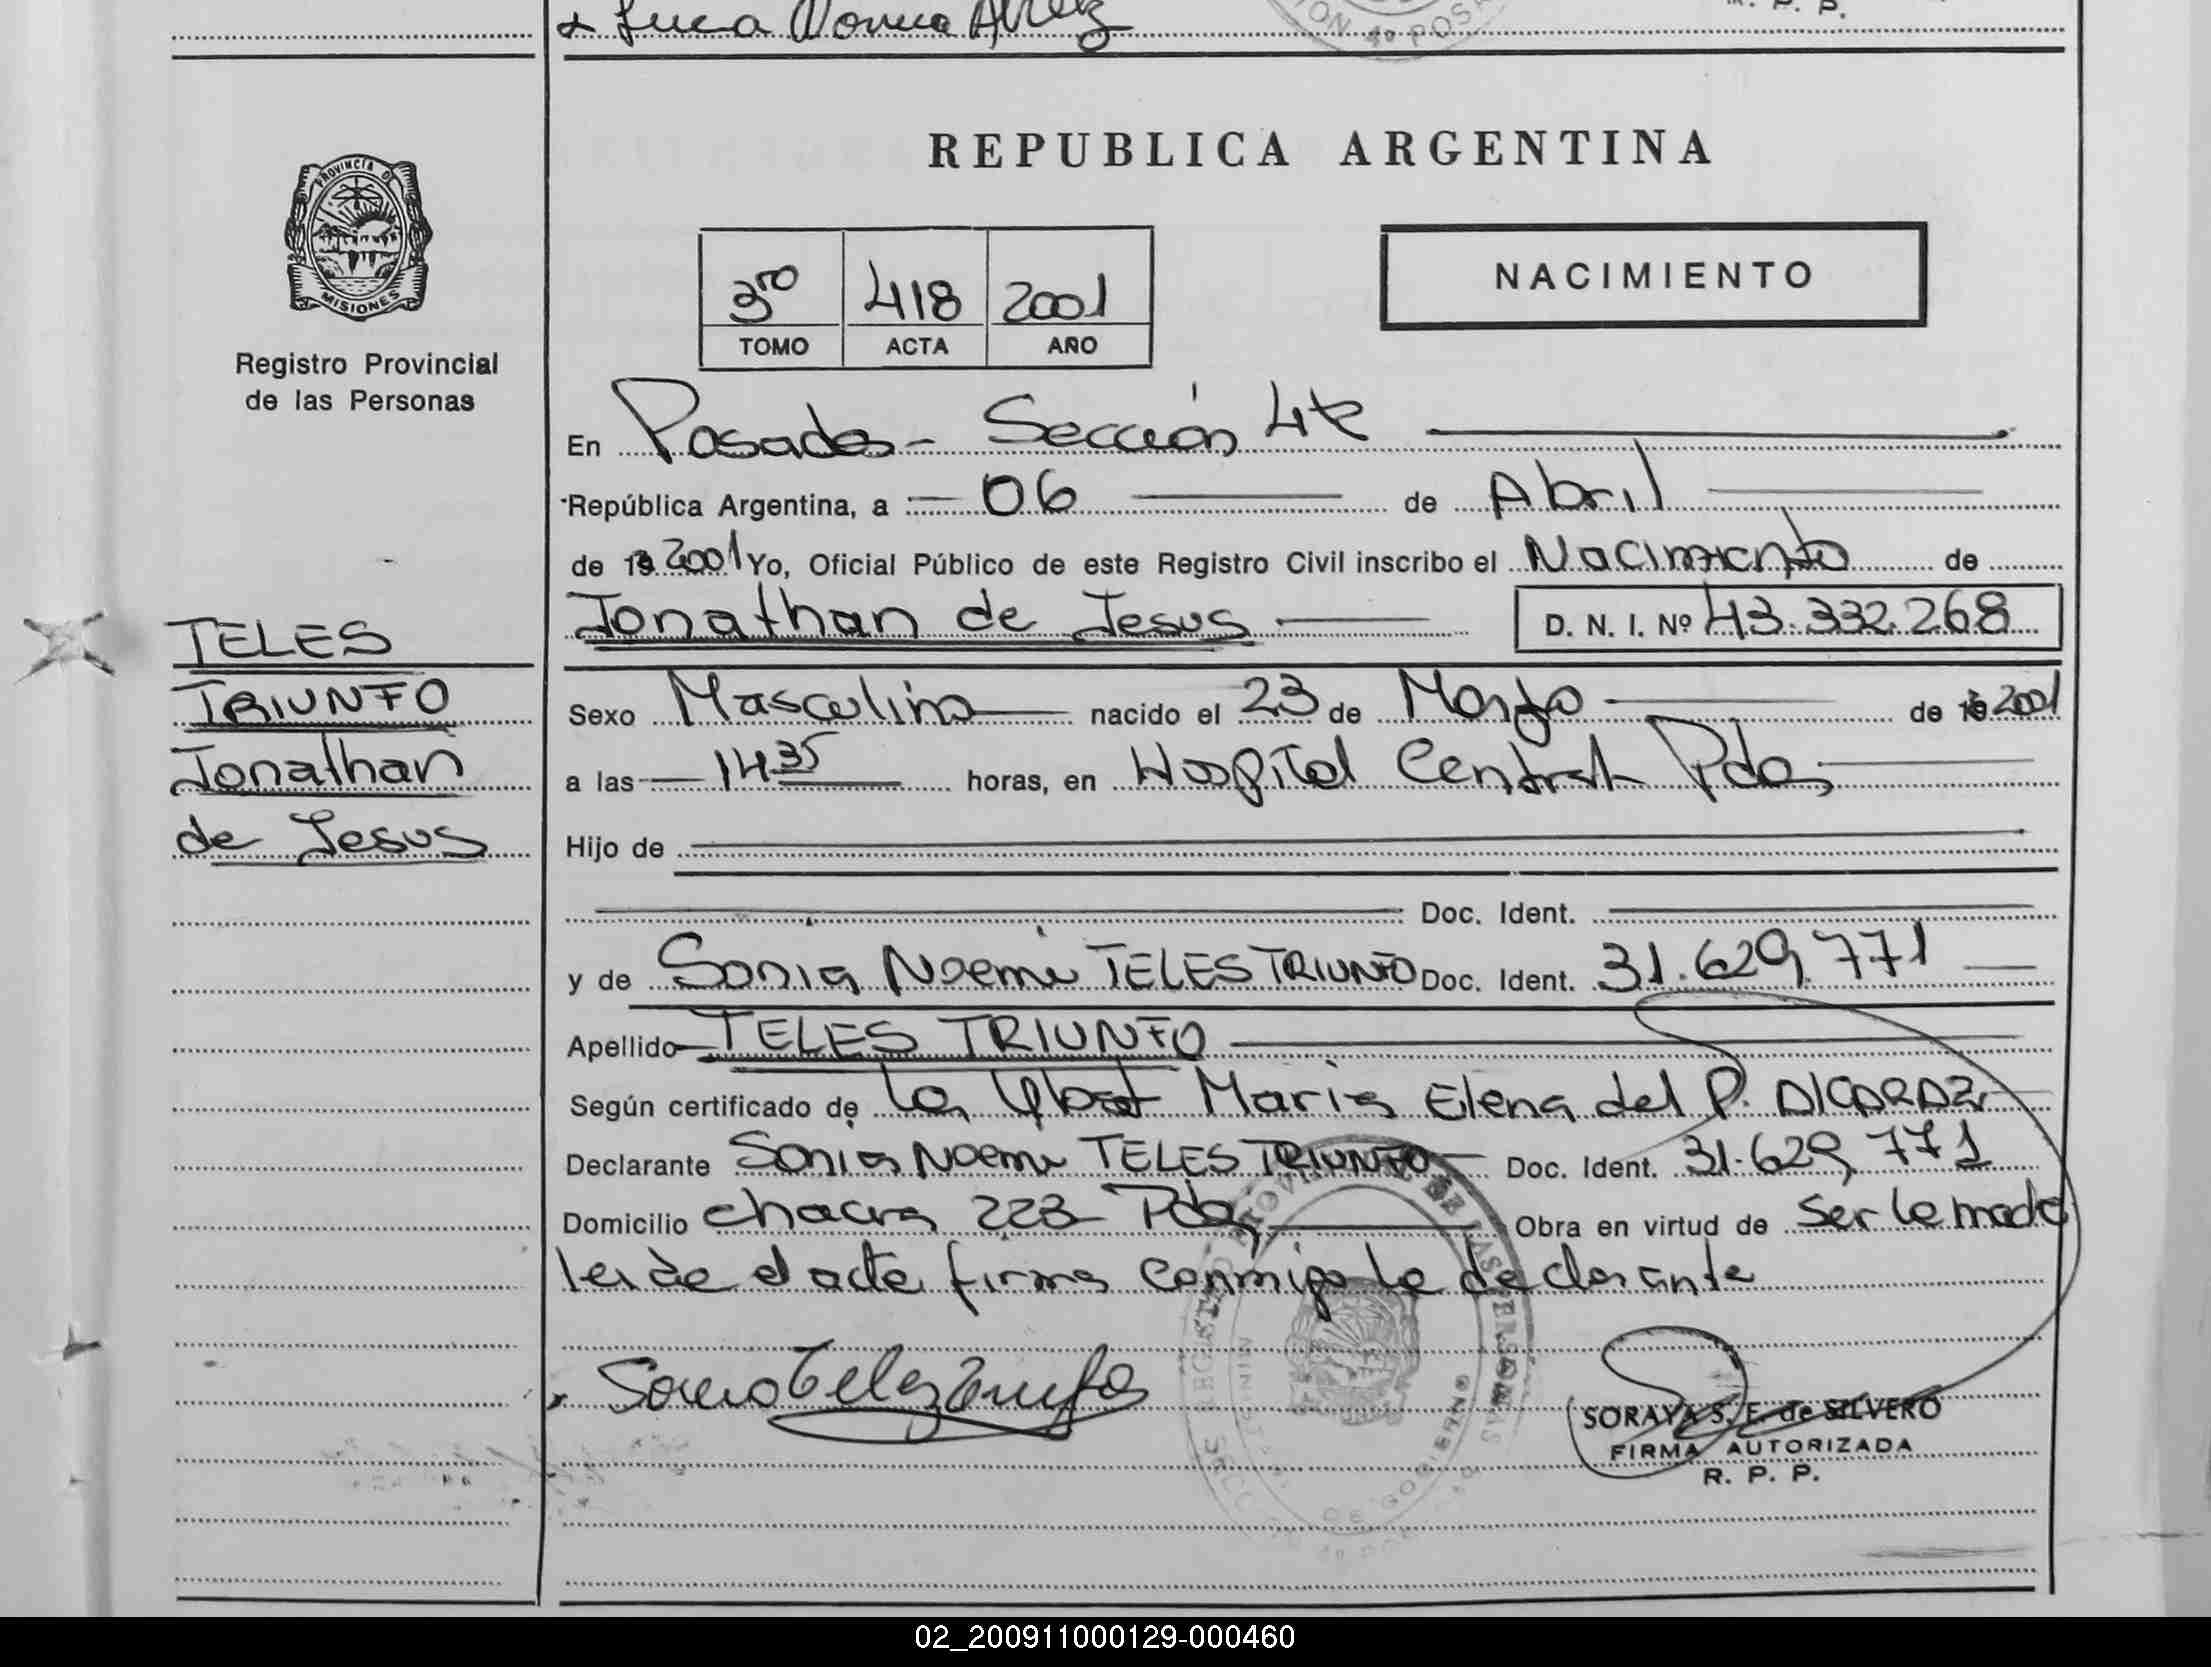 PROVINCIA DE
MISIONES
Registro Provincial
de las Personas
TELES
TRIUNFO
Jonathan
de Jesus
REPUBLICA ARGENTINA
3ro 418 2001
TOMO ACTA AÑO
NACIMIENTO
En Posadas - Sección 4ta
República Argentina, a 06 de Abril
de 19 2001 Yo, Oficial Público de este Registro Civil inscribo el Nacimiento de
Jonathan de Jesus D. N. I. Nº 43.332.268
Sexo Masculino nacido el 23 de Marzo de 19 2001
a las 14.35 horas, en Hospital Central Pdas
Hijo de
Doc. Ident.
y de Sonia Noemi TELES TRIUNFO Doc. Ident. 31.629.771
Apellido TELES TRIUNFO
Según certificado de la Obst Maria Elena del P. ALCARAZ
Declarante Sonia Noemi TELES TRIUNFO Doc. Ident. 31.629.771
Domicilio chacra 223 Pdas Obra en virtud de ser la madre
leida el acta firma conmigo la declarante
SORAYA S. E. de SILVERO
FIRMA AUTORIZADA
R. P. P.
02_200911000129-000460